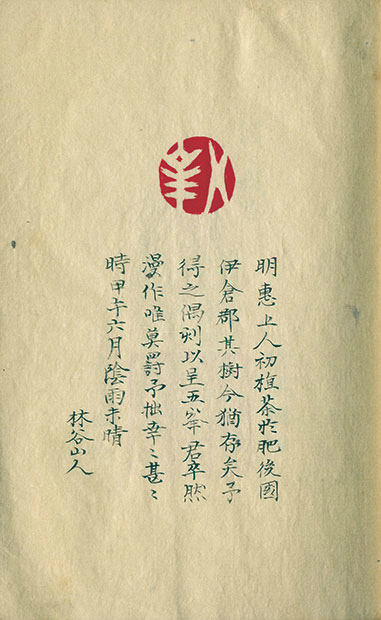 明惠上人初植茶於肥後國
伊倉郡其樹今猶存矣予
得之刻以呈五峯君卒然
漫作唯莫罸予拙幸〻甚〻
時甲午六月陰雨未晴
林谷山人